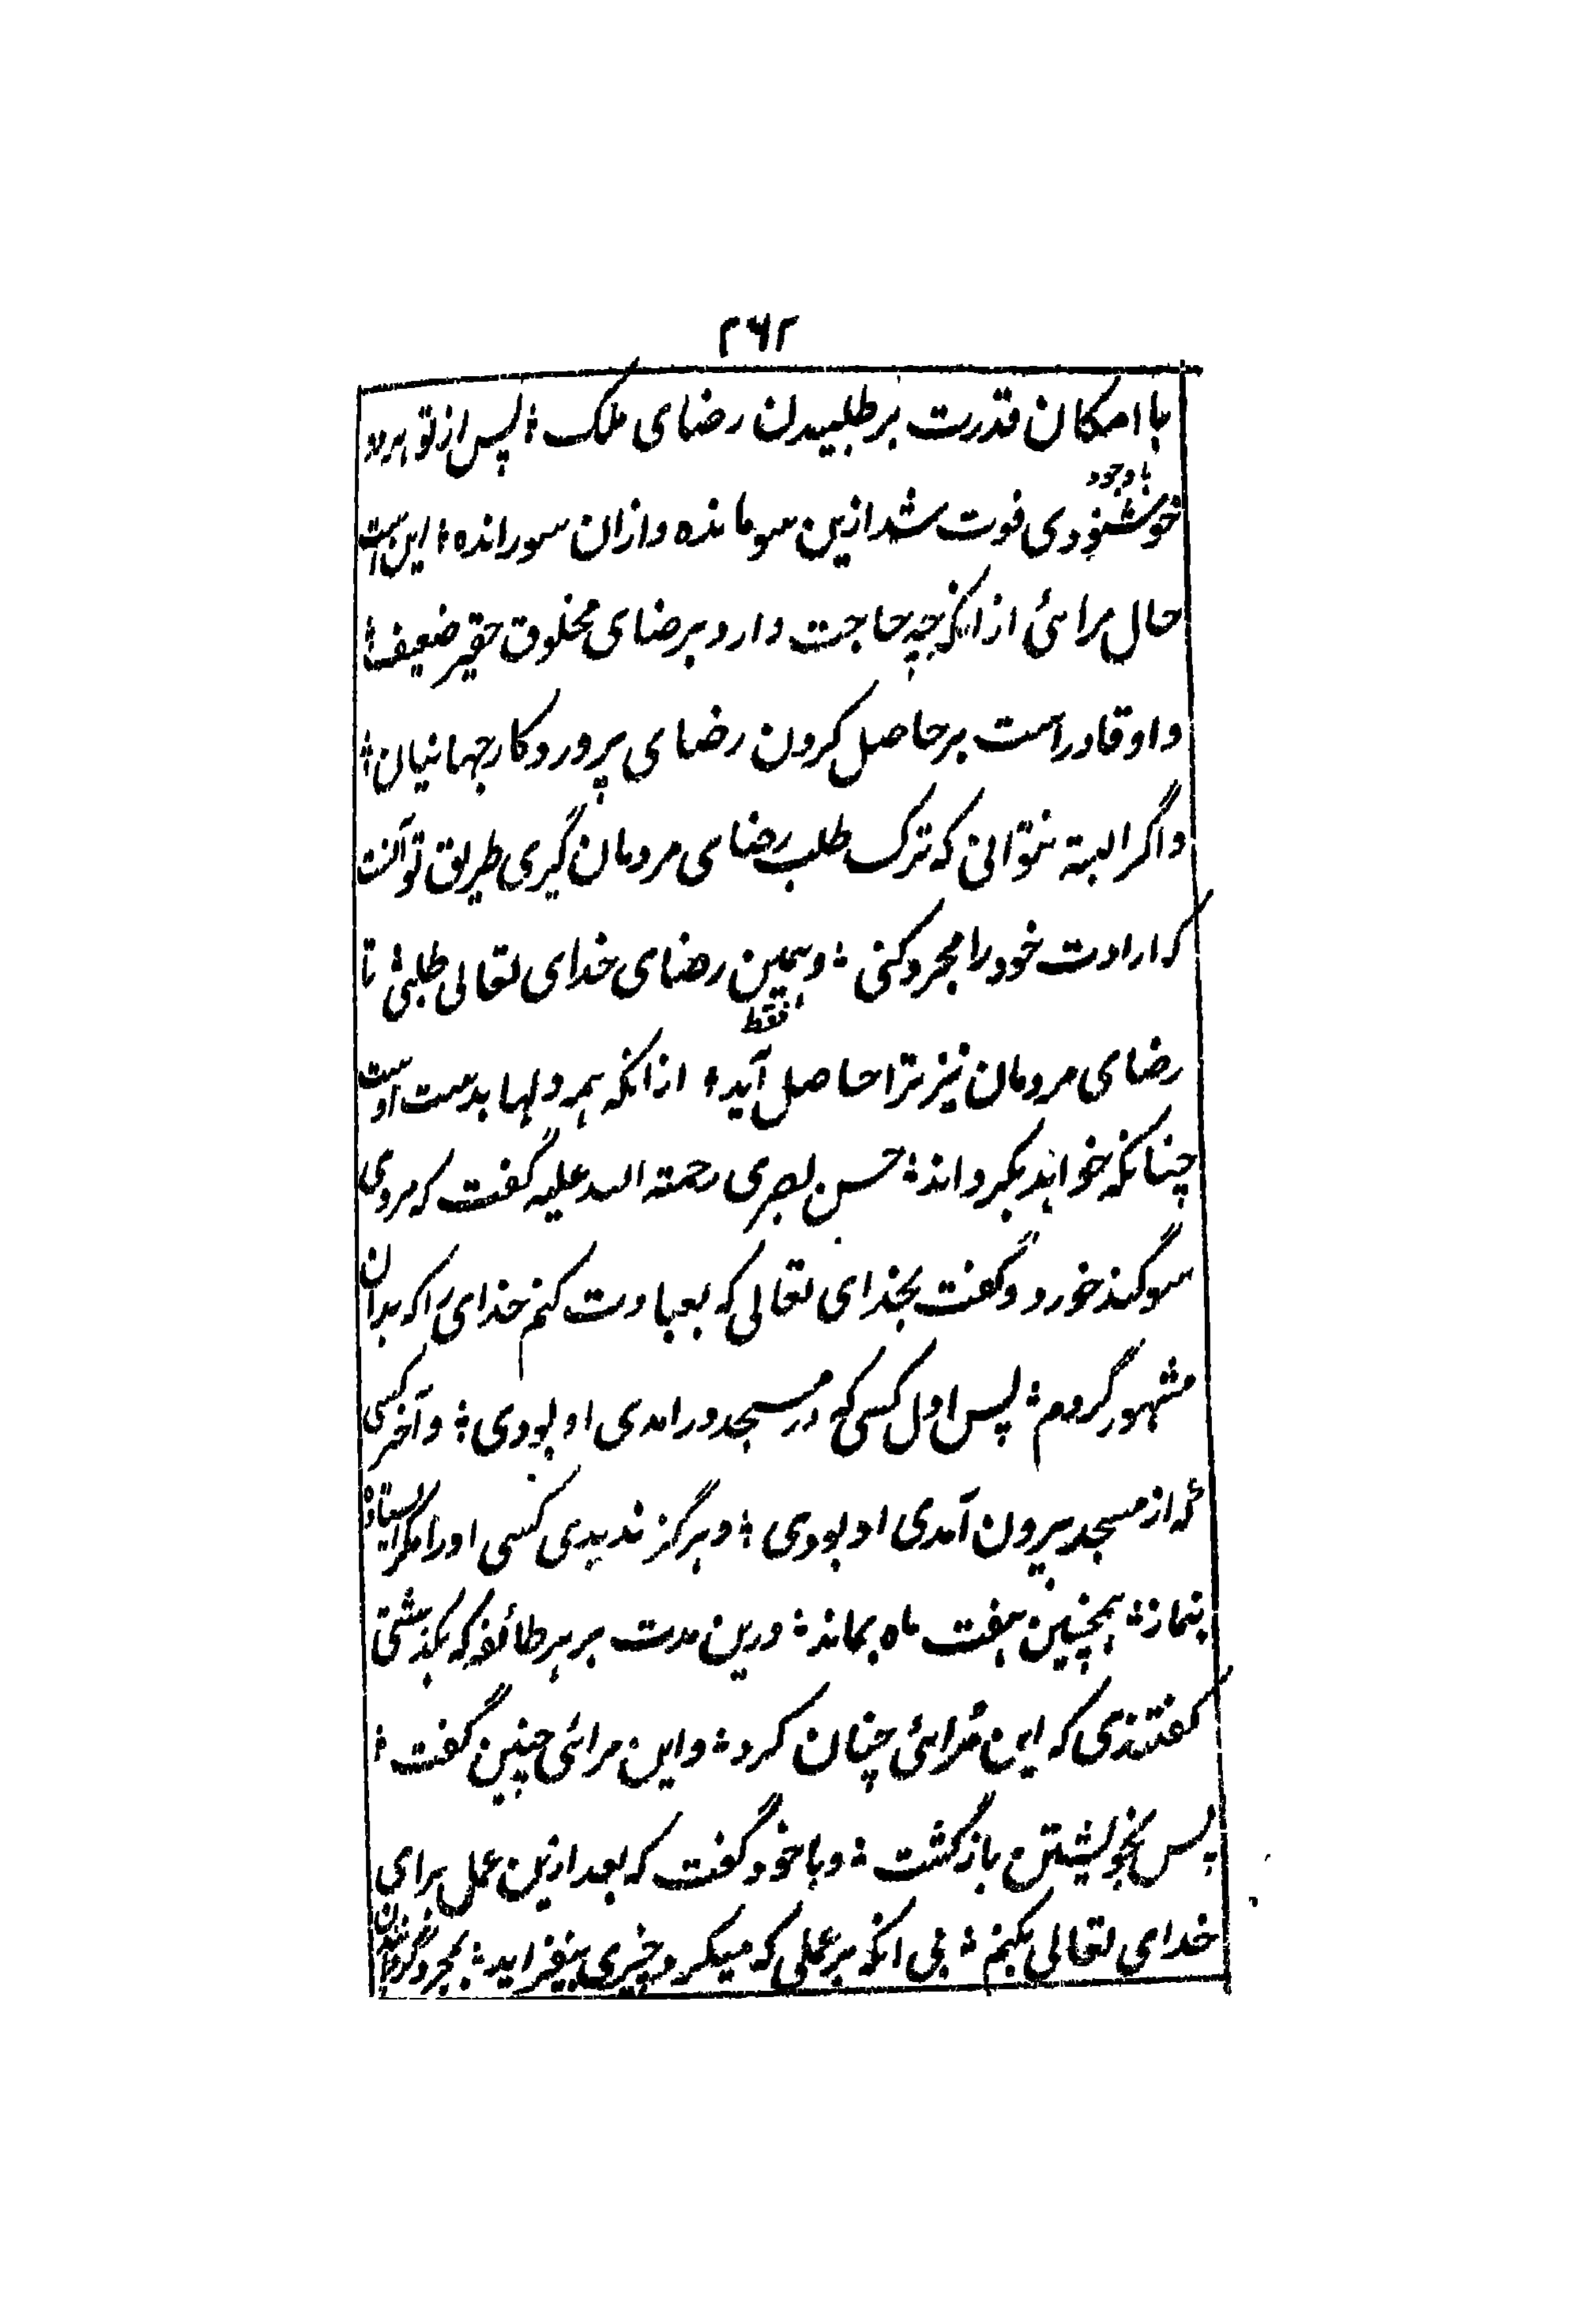 ۲۶۲
با امکان قدرت بر طلبیدن رضای ملک؛ پس از تو هر دو
باوجود
خوشنودی فوت شد ازین سو مانده و ازان سو رانده؛ این ست
حال مرائی از انکه چه حاجت دارد برضای مخلوق حقیر ضعیف؛
و او قادر است بر حاصل کردن رضای پروردکار جهانیان؛
و اگر البته نتوانی که ترک طلب رضای مردمان گیری طریق تو آنست
که ارادت خود را مجرد کنی؛ و همین رضای خدای تعالی طلبی؛ تا
فقط
رضای مردمان نیز ترا حاصل آید؛ از انکه همه دلها بدست اوست
چنانکه خواهد بگرداند؛ حسن بصری رحمته الله علیه گفت که مردی
سوگند خورد و گفت بخدای تعالی که بعبادت کنم خدای را که بدان
مشهور گردم؛ پس اول کسی که در مسجد در امدی او بودی؛ و آخر کسی
که از مسجد بیرون آمدی او بودی؛ و هرگز ندیدی کسی او را مگر ایستاده
بنماز؛ همچنین هفت ماه بماند؛ درین مدت بر هر طائفه که بگذشتی
گفتندی که این مرائی چنان کرد؛ و این مرائی چنین گفت؛
پس بخویشتن باز گشت؛ و با خود گفت که بعد ازین عمل برای
خدای تعالی بکنم؛ بی انکه بر عملی که میکرد چیزی بیفزاید؛ بمجرد گردانیدن